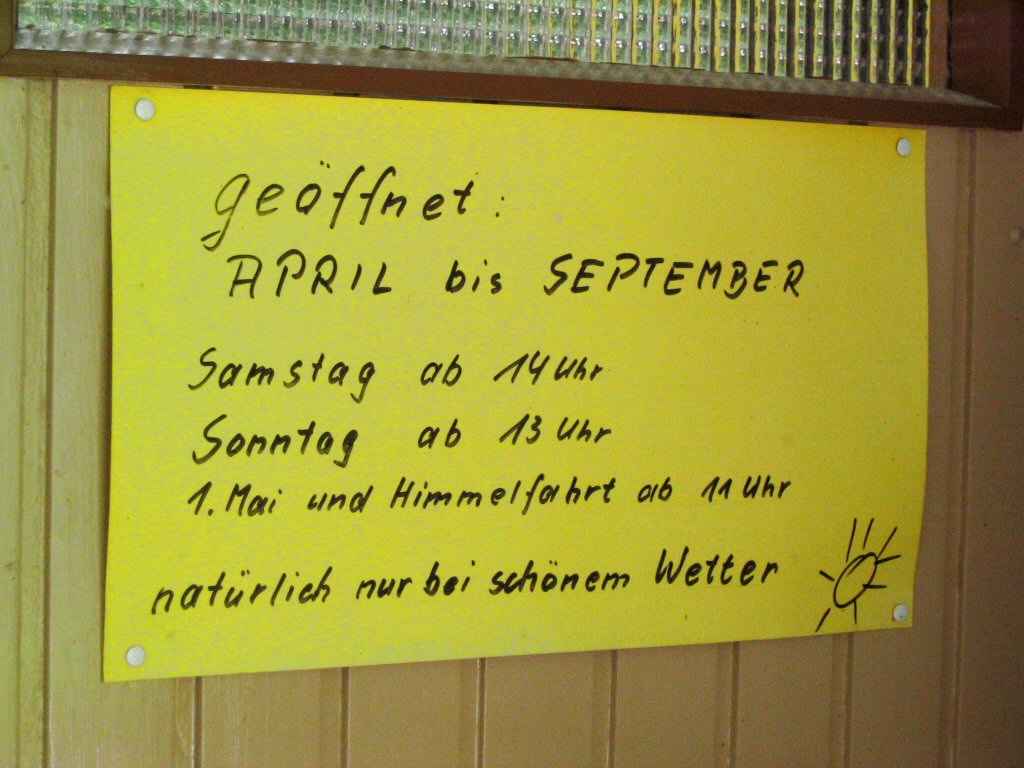 geöffnet:
APRIL bis SEPTEMBER
Samstag ab 14 Uhr
Sonntag ab 13 Uhr
1. Mai und Himmelfahrt ab 11 Uhr
natürlich nur bei schönem Wetter